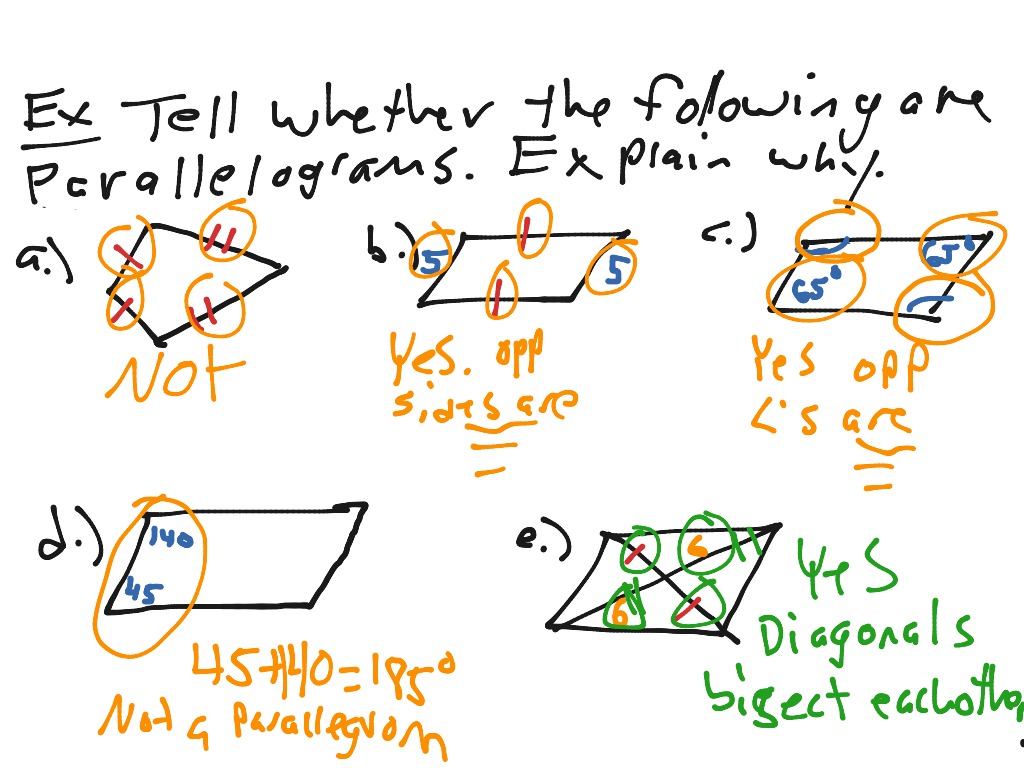 Ex Tell whether the following are
Parallelograms. Explain why.
a.)
NOT
b.) 5 5
Yes. opp
sides are
c.) 65° 65°
Yes opp
∠'s are
d.) 140
45
45+140=185°
Not a Parallegrom
e.) 6
6
Yes
Diagonals
bisect eachother